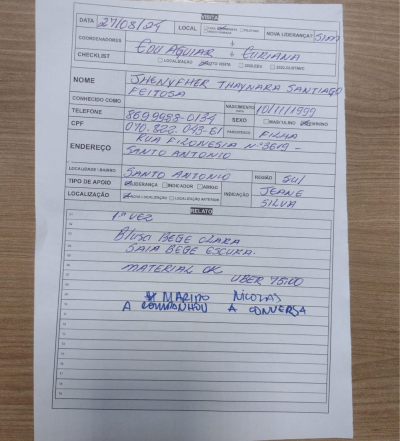 VISITA
DATA 27/03/24 LOCAL NOVA LIDERANÇA? SIM
COORDENADORES EDU AGUIAR + EURIANA
CHECKLIST LOCALIZAÇÃO FOTO VISITA
NOME SHENYFHER THAYNARA SANTIAGO
FEITOSA
CONHECIDO COMO NASCIMENTO 10/11/1999
TELEFONE 869.9988-0134 SEXO MASCULINO FEMININO
CPF 070.822.093-61 FILHA
ENDEREÇO RUA FILONESIA Nº 3619 -
SANTO ANTONIO
LOCALIDADE / BAIRRO SANTO ANTONIO REGIÃO SUL
TIPO DE APOIO LIDERANÇA INDICADOR AMIGO INDICAÇÃO JEANE
LOCALIZAÇÃO NOVA LOCALIZAÇÃO LOCALIZAÇÃO ANTERIOR SILVA
RELATO
1ª VEZ
BLUSA BEGE CLARA
SAIA BEGE ESCURA.
MATERIAL OK
UBER 75:00
MARIDO NICOLAS
ACOMPANHOU A CONVERSA